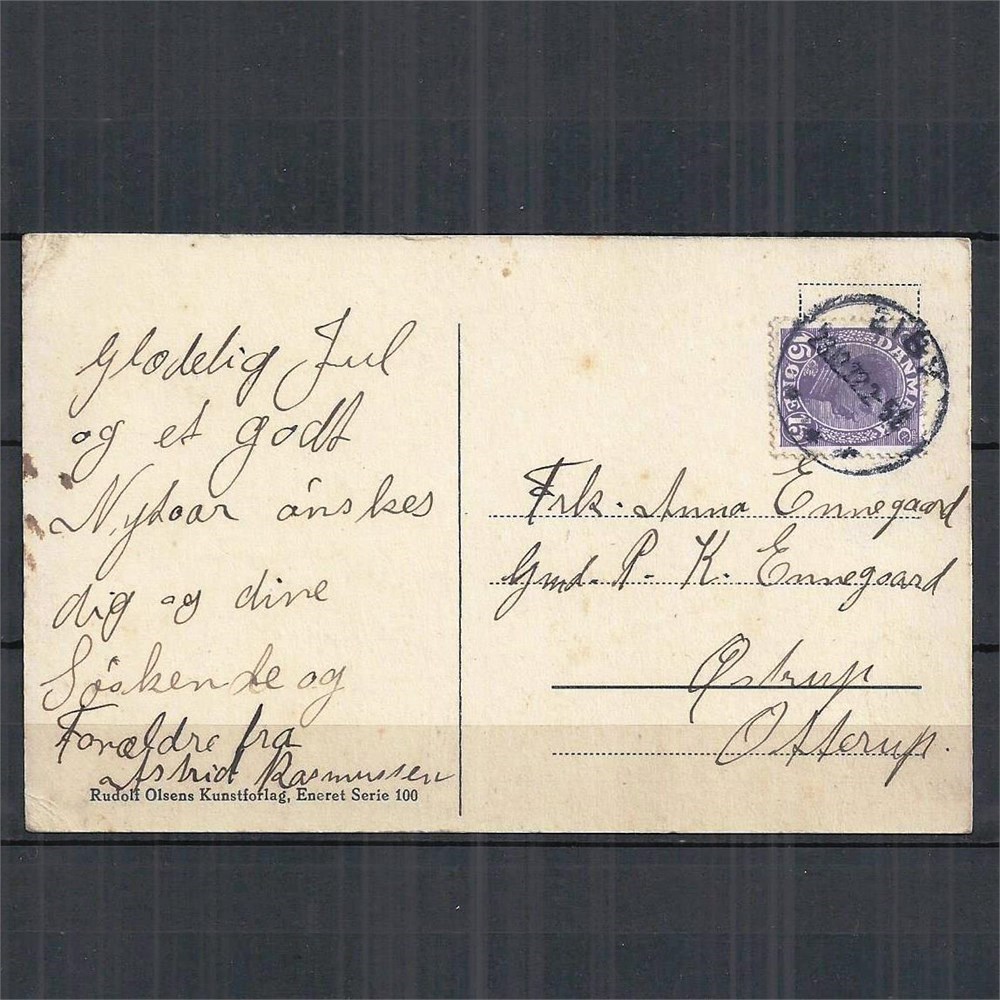 Glædelig Jul
og et godt
Nytaar ønskes
dig og dine
Søskende og
Forældre fra
Astrid Rasmussen
Rudolf Olsens Kunstforlag, Eneret Serie 100
DANMARK
15 ØRE 15
Frk. Anna Ennegaard
Gmd. P. K. Ennegaard
Østrup
Otterup.